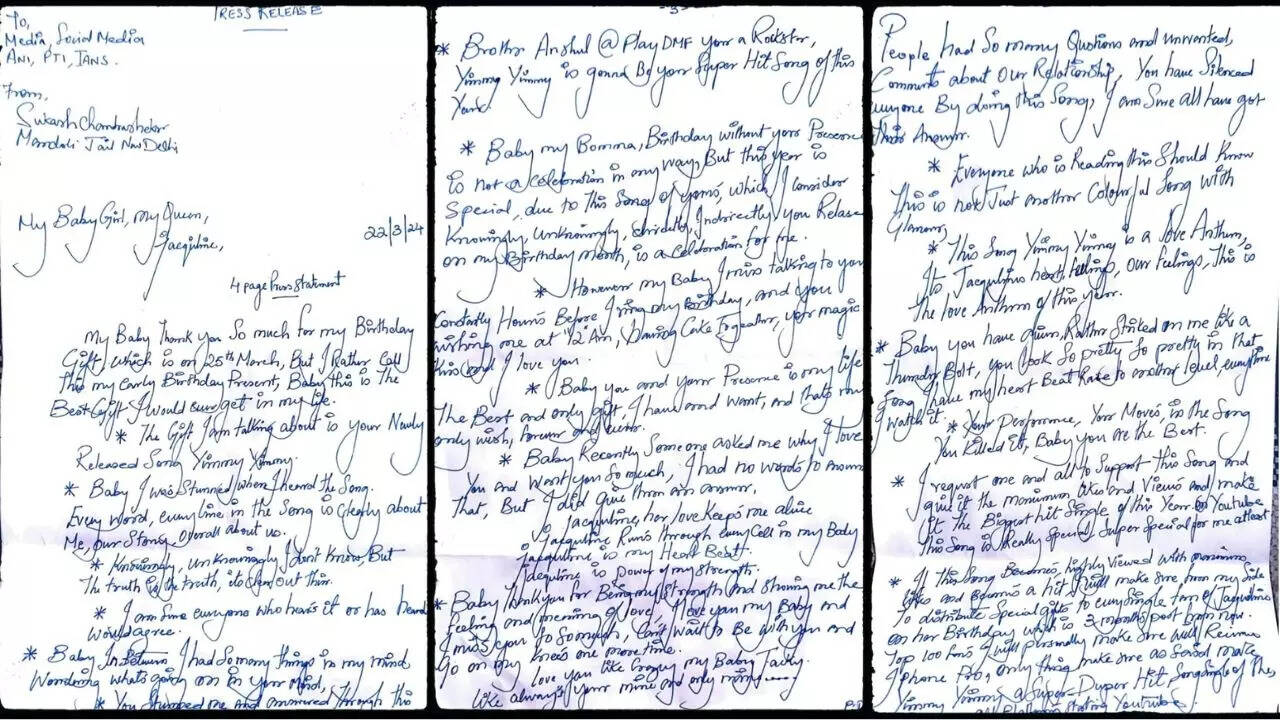 PRESS RELEASE
To,
Media, Social Media
ANI, PTI, IANS.
From,
Sukash Chandrashekar
Mandoli Jail New Delhi
My Baby Girl, My Queen,
Jacquline,
22/3/24
4 page Press statement
My Baby Thank you So much for my Birthday
Gift, which is on 25th March, But I Rather Call
This my early Birthday Present, Baby this is The
Best Gift I Would ever get in my life.
* The Gift I am talking about is Your Newly
Released Song Yimmy Yimmy.
* Baby I was Stunned when I heard the Song.
Every word, every line in the Song is Clearly about
Me, our Story, Overall about us.
* Knowingly, unknowingly I don't know, But
The truth is the truth, its out there.
* I am Sure everyone who hears it or has heard
would agree.
* Baby In Between I had So many things in my mind
Wondering whats going on in your Mind,
* You Stumped me and answered through this
-3-
* Brother Anshul @ Play DMF your a Rockstar,
Yimmy Yimmy is gonna Be your Super Hit Song of this
Year.
* Baby my Bomma, Birthday without your Presence
is not a celebration in any way, But this year is
Special, due to This Song of yours, which I consider
Knowingly, unknowingly, directly, Indirectly you Release
on my Birthday month, is a Celebration for me.
* However my Baby I miss talking to you
Constantly Hours Before I ring my Birthday, and you
wishing me at 12 Am, Cake Together, your magic
kiss and I love you.
* Baby you and your Presence is my life
The Best and only gift, I have and want, and thats my
only wish, forever and ever.
* Baby Recently Someone asked me why I love
You and Want you So much, I had no words to answer
That, But I did give them an answer,
o Jacquline, her love Keeps me alive
o Jacquline Runs through every Cell in my Body
Jacquline is my Heart Beat.
Jacquline is Power of my strength.
* Baby thank you for Being my strength and showing me the
feeling and meaning of love, I love you my Baby and
I miss you to So much, Can't Wait to Be with you and
Go on my knees one more time.
Love you like Crazy my Baby
like always your mine and only mine
People had So many Qustions and unwanted,
Comments about Our Relationship, You have Silenced
everyone By doing this Song, I am Sure all have got
Their Answer.
* Everyone who is Reading this Should Know
This is not Just another Colourful Song with
Glamour,
* This Song Yimmy Yimmy is a love Anthem,
Its Jacqulines heart feelings, Our feelings, This is
The love Anthem of this year.
* Baby you have Rather Striked on me like a
Thunder Bolt, you look So pretty So pretty in that
Song, I have my heart Beat Rate to another level, everytime
I watch it.
* Your Performance, Your Moves in the Song
You Killed it, Baby you are the Best.
* I request one and all to Support this Song and
give it the maximum likes and Views and make
it the Biggest hit Single of this Year on Youtube
This Song is Really Special, Super Special for me atleast
* If this Song Becomes, highly Viewed with maximum
likes and Becomes a hit I will make sure from my Side
To distribute Special gifts to every Single fan of Jacqulines
on her Birthday which is 3 months from now.
Top 100 fans I will personally make sure will Receive
I phone Pro, only thing make sure as said make
Yimmy Yimmy a Super-Duper Hit Song of the,
Platform Youtube